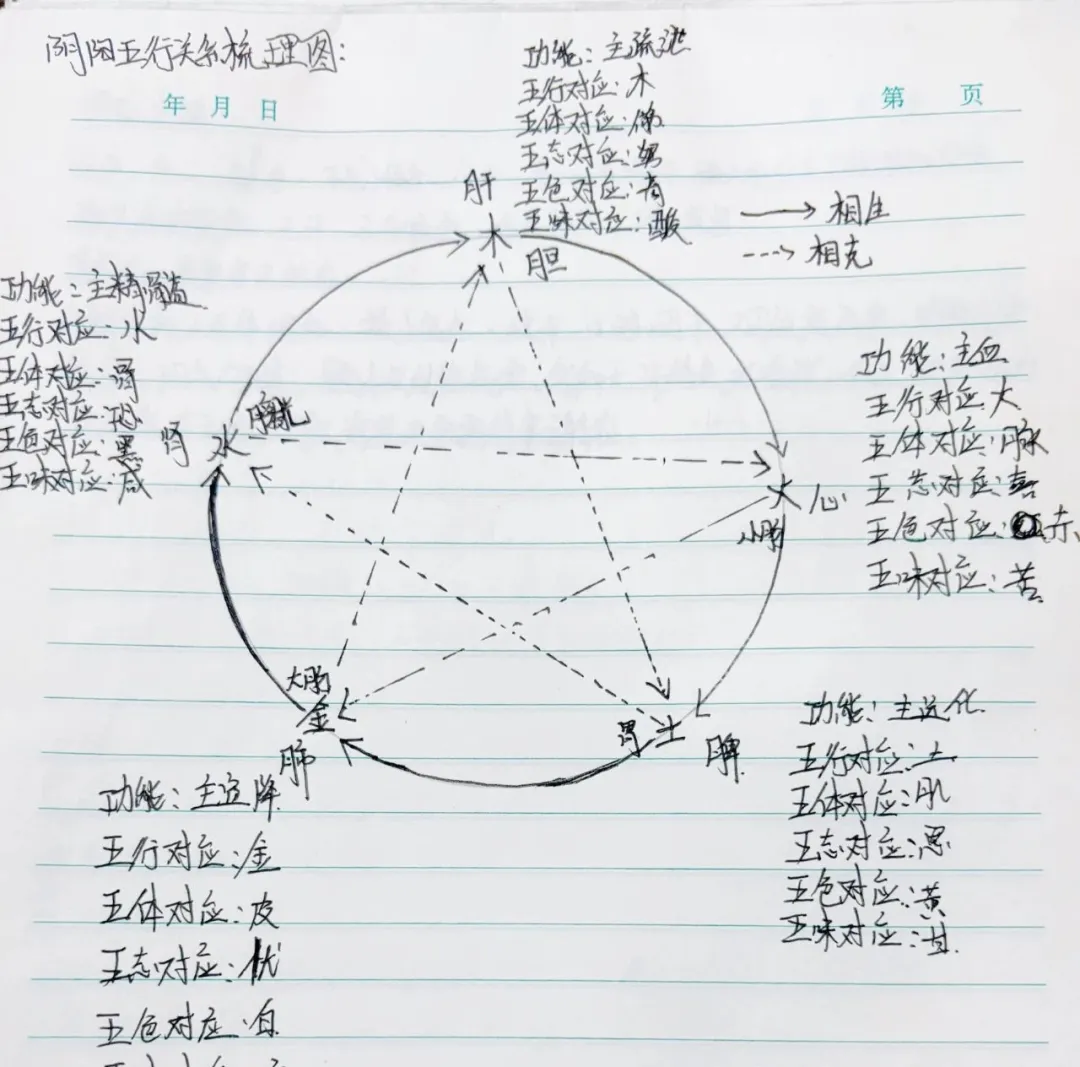 阴阳五行关系梳理图:
年 月 日
第 页
功能:主疏泄
五行对应:木
五体对应:
五志对应:
五色对应:青
五味对应:酸
肝
木
胆
相生
相克
功能:主精骨髓
五行对应:水
五体对应:骨
五志对应:恐
五色对应:黑
五味对应:咸
肾 水 膀胱
功能:主血
五行对应:火
五体对应:脉
五志对应:喜
五色对应:赤
五味对应:苦
火 心
小肠
大肠
金
肺
胃 土 脾
功能:主运化
五行对应:土
五体对应:肌
五志对应:思
五色对应:黄
五味对应:甘
功能:主宣降
五行对应:金
五体对应:皮
五志对应:忧
五色对应:白